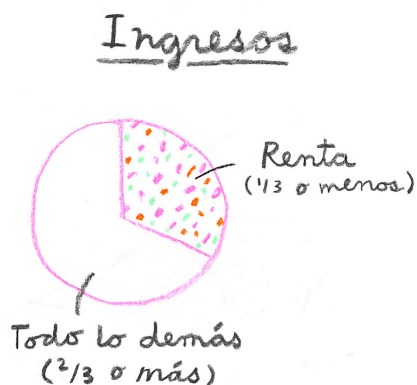 Ingresos
Renta
(1/3 o menos)
Todo lo demás
(2/3 o más)